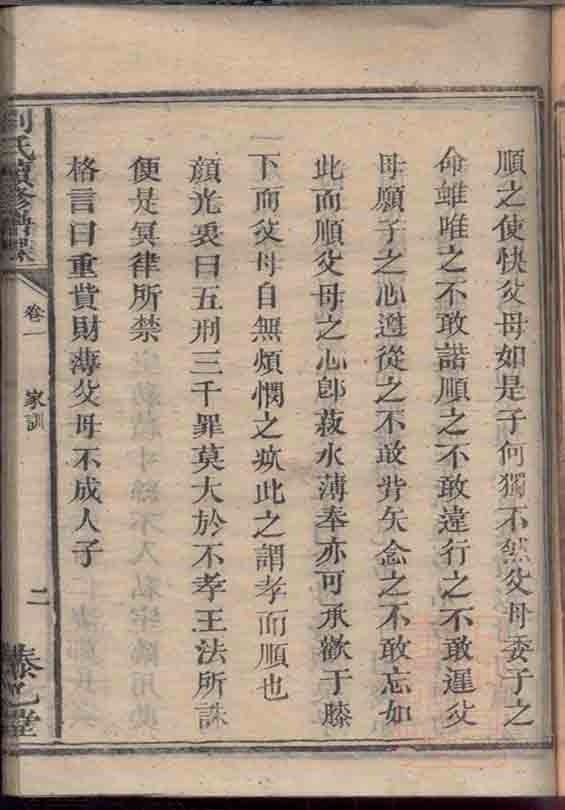 順之使快父母如是子何獨不然父母委子之
命雖唯之不敢諾順之不敢違行之不敢遲父
母願子之心遵從之不敢背矢念之不敢忘如
此而順父母之心即菽水薄奉亦可承歡于膝
下而父母自無煩憫之疚此之謂孝而順也
顏光衷曰五刑三千罪莫大於不孝王法所誅
便是冥律所禁
格言曰重貲財薄父母不成人子
劉氏續修譜
卷一
家訓
二
堂